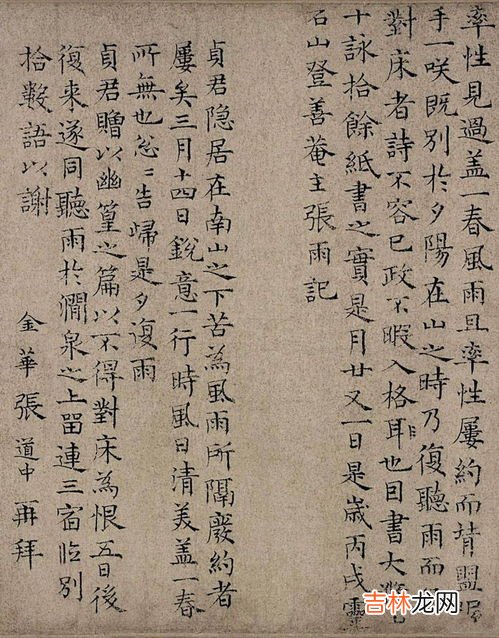 率性見過盖一春風雨且率性屢約而背盟
手一咲既別於夕陽在山之時乃復聽雨而
對床者詩不容已政不暇入格耳也因書大
十詠拾餘紙書之實是月廿又一日是歲丙戌靈
石山登善菴主張雨記
貞君隐居在南山之下苦為風雨所隔廢約者
屢矣三月十四日銳意一行時風日清美盖一春
所無也怱〻告歸是夕復雨
貞君贈以幽篁之篇以不得對床為恨五日後
復来遂同聽雨於澗泉之上留連三宿临別
拾數語以謝
金華張道中再拜
吉林龙网